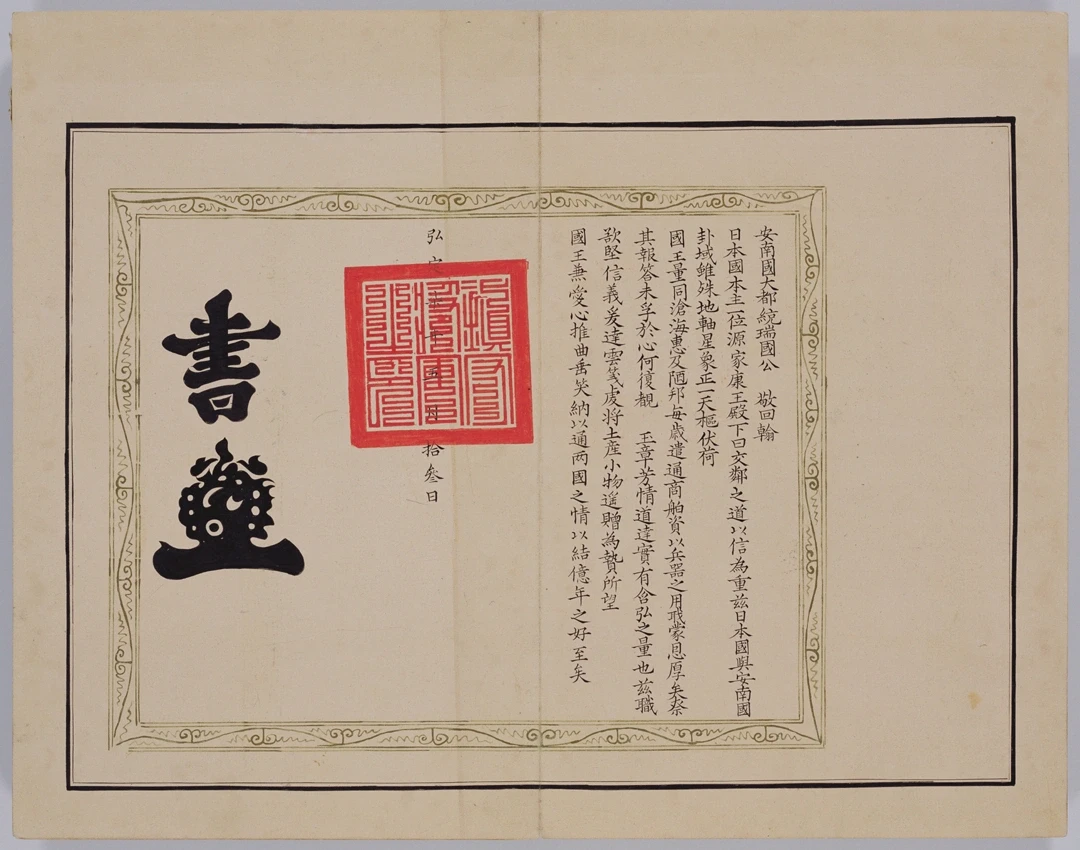 安南國大都統瑞國公 敬回翰
日本國本主一位源家康王殿下曰交鄰之道以信為重兹日本國與安南國
卦域雖殊地軸星象正一天樞伏荷
國王量同滄海惠及陋邦每歲遣通商舶資以兵器之用職蒙恩厚矣然
其報答未孚於心何復覩 玉章芳情道達實有含弘之量也兹職
欲堅信義爰達雲箋虔将土産小物遥贈為贄所望
國王兼愛心推曲岳笑納以通两國之情以結億年之好至矣
弘定 年五月拾叄日
書